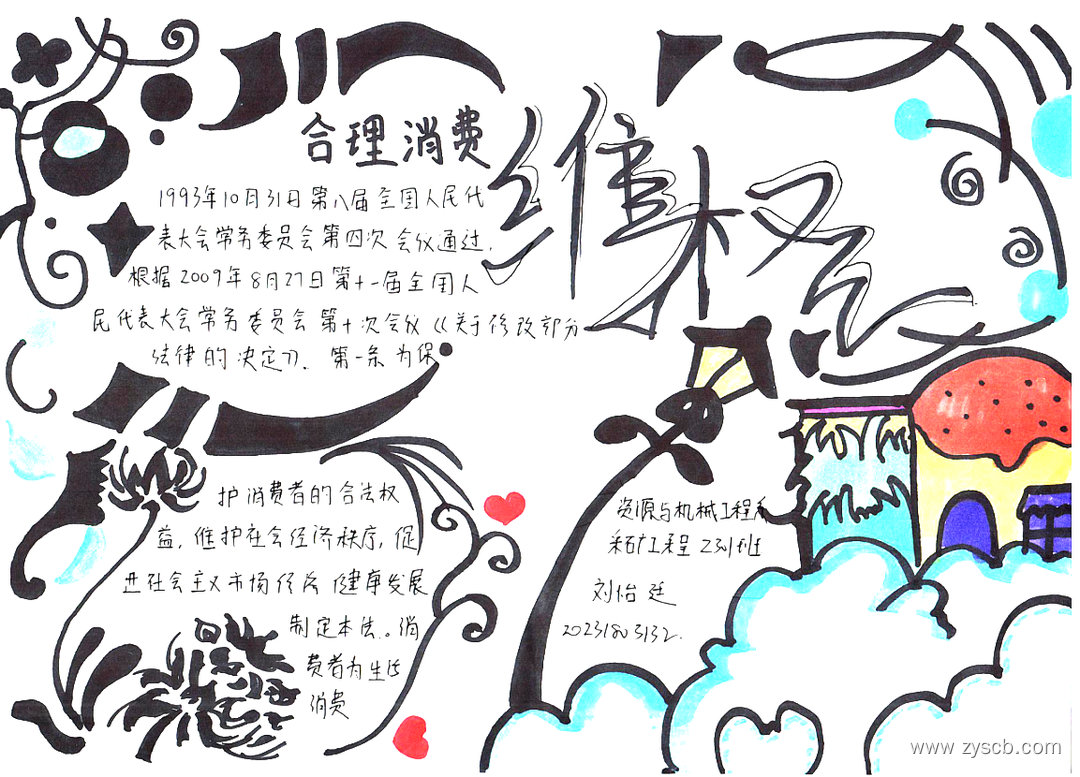 合理消费
维权
1993年10月31日第八届全国人民代
表大会常务委员会第四次会议通过.
根据2009年8月27日第十一届全国人
民代表大会常务委员会第十次会议《关于修改部分
法律的决定》. 第一条 为保
护消费者的合法权
益, 维护社会经济秩序, 促
进社会主义市场经济健康发展
制定本法。消
费者为生活
消费
资源与机械工程系
工程 231班
刘怡廷
20231803132.
www.zyscb.com